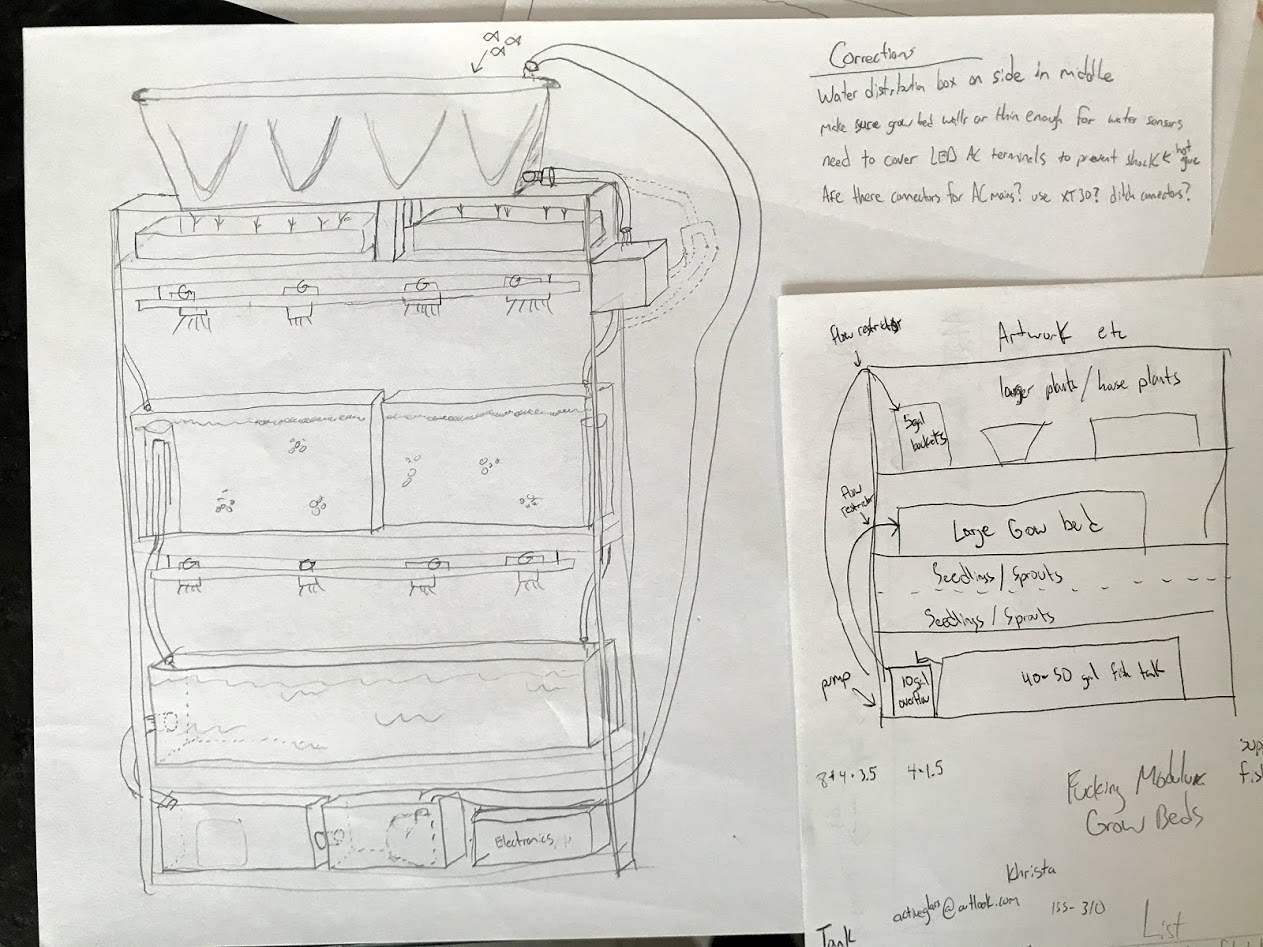 Corrections
Water distribution box on side in middle
Make sure grow bed walls or thin enough for water sensors
need to cover LED AC terminals to prevent shock & hot glue
Are there connectors for AC mains? use XT30? ditch connectors?
G G G G
G G G
Electronics
flow restrictor
Artwork etc
larger plants / house plants
5gal buckets
flow restrictor
Large Grow bed
Seedlings / Sprouts
Seedlings / Sprouts
pump
10gal overflow
40-50 gal fish tank
8*4*3.5 4*1.5
Fucking Modular
Grow Beds
Khrista
activeglass@outlook.com 155-310
List
Tank